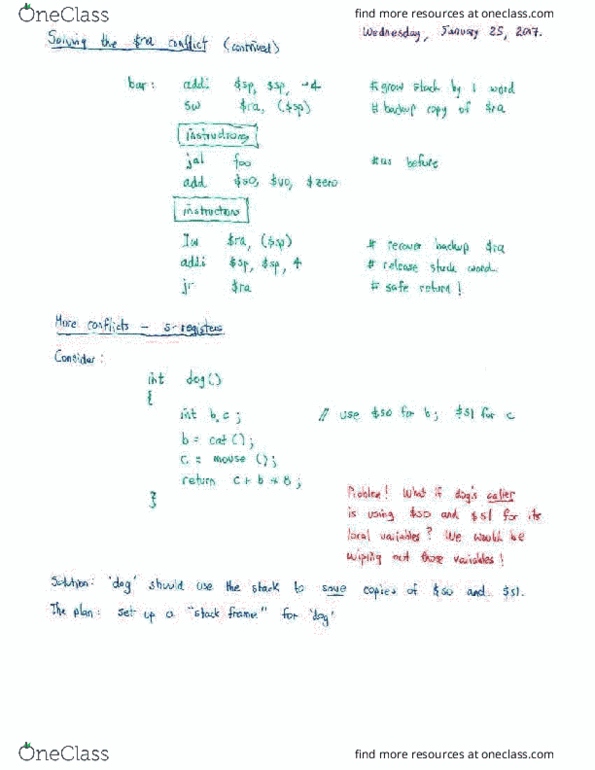 OneClass
find more resources at oneclass.com
Solving the $ra conflict (continued)
Wednesday, January 25, 2017.
bar: addi $sp, $sp, -4 # grow stack by 1 word
sw $ra, ($sp) # backup copy of $ra
instructions
jal foo # as before
add $s0, $v0, $zero
instructions
lw $ra, ($sp) # recover backup $ra
addi $sp, $sp, 4 # release stack word.
jr $ra # safe return!
More conflicts - s-registers
Consider:
int dog()
{
int b, c; // use $s0 for b; $s1 for c
b = cat();
c = mouse();
return c + b * 8;
}
Problem! What if dog's caller
is using $s0 and $s1 for its
local variables? We would be
wiping out those variables!
Solution: 'dog' should use the stack to save copies of $s0 and $s1.
The plan: set up a "stack frame" for 'dog'
OneClass
find more resources at oneclass.com